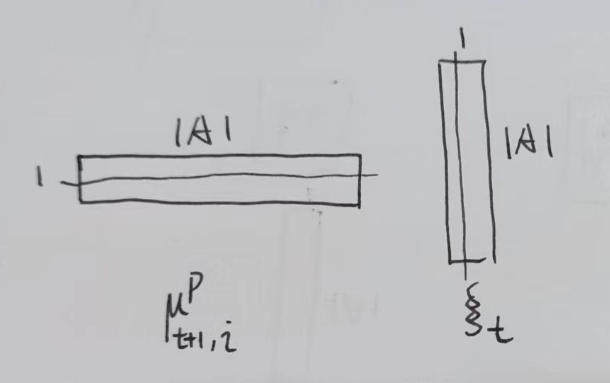 |A|
1
μ^P_{t+1,i}
1
|A|
ξ_t